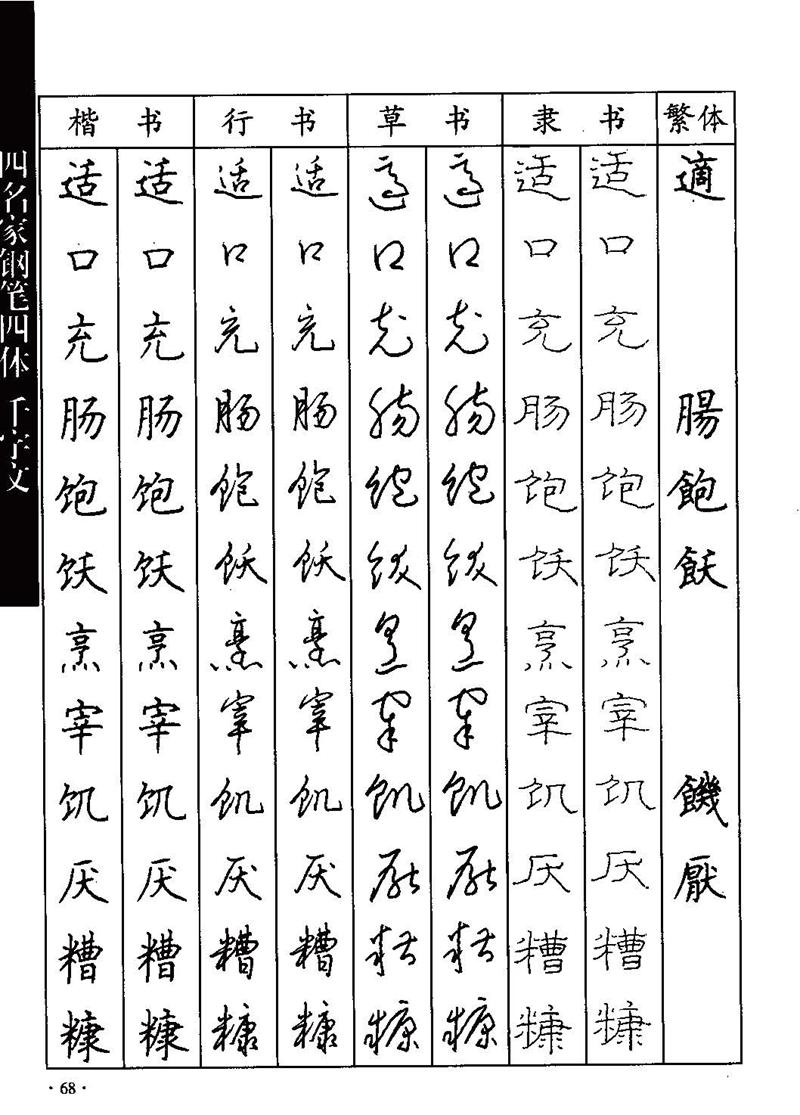 四名家钢笔四体 千字文
楷 书 行 书 草 书 隶 书 繁体
适 适 适 适 适 适 适 适 適
口 口 口 口 口 口 口 口
充 充 充 充 充 充 充 充
肠 肠 肠 肠 肠 肠 肠 肠 腸
饱 饱 饱 饱 饱 饱 饱 饱 飽
饫 饫 饫 饫 饫 饫 饫 饫 飫
烹 烹 烹 烹 烹 烹 烹 烹
宰 宰 宰 宰 宰 宰 宰 宰
饥 饥 饥 饥 饥 饥 饥 饥 饑
厌 厌 厌 厌 厌 厌 厌 厌 厭
糟 糟 糟 糟 糟 糟 糟 糟
糠 糠 糠 糠 糠 糠 糠 糠
·68·